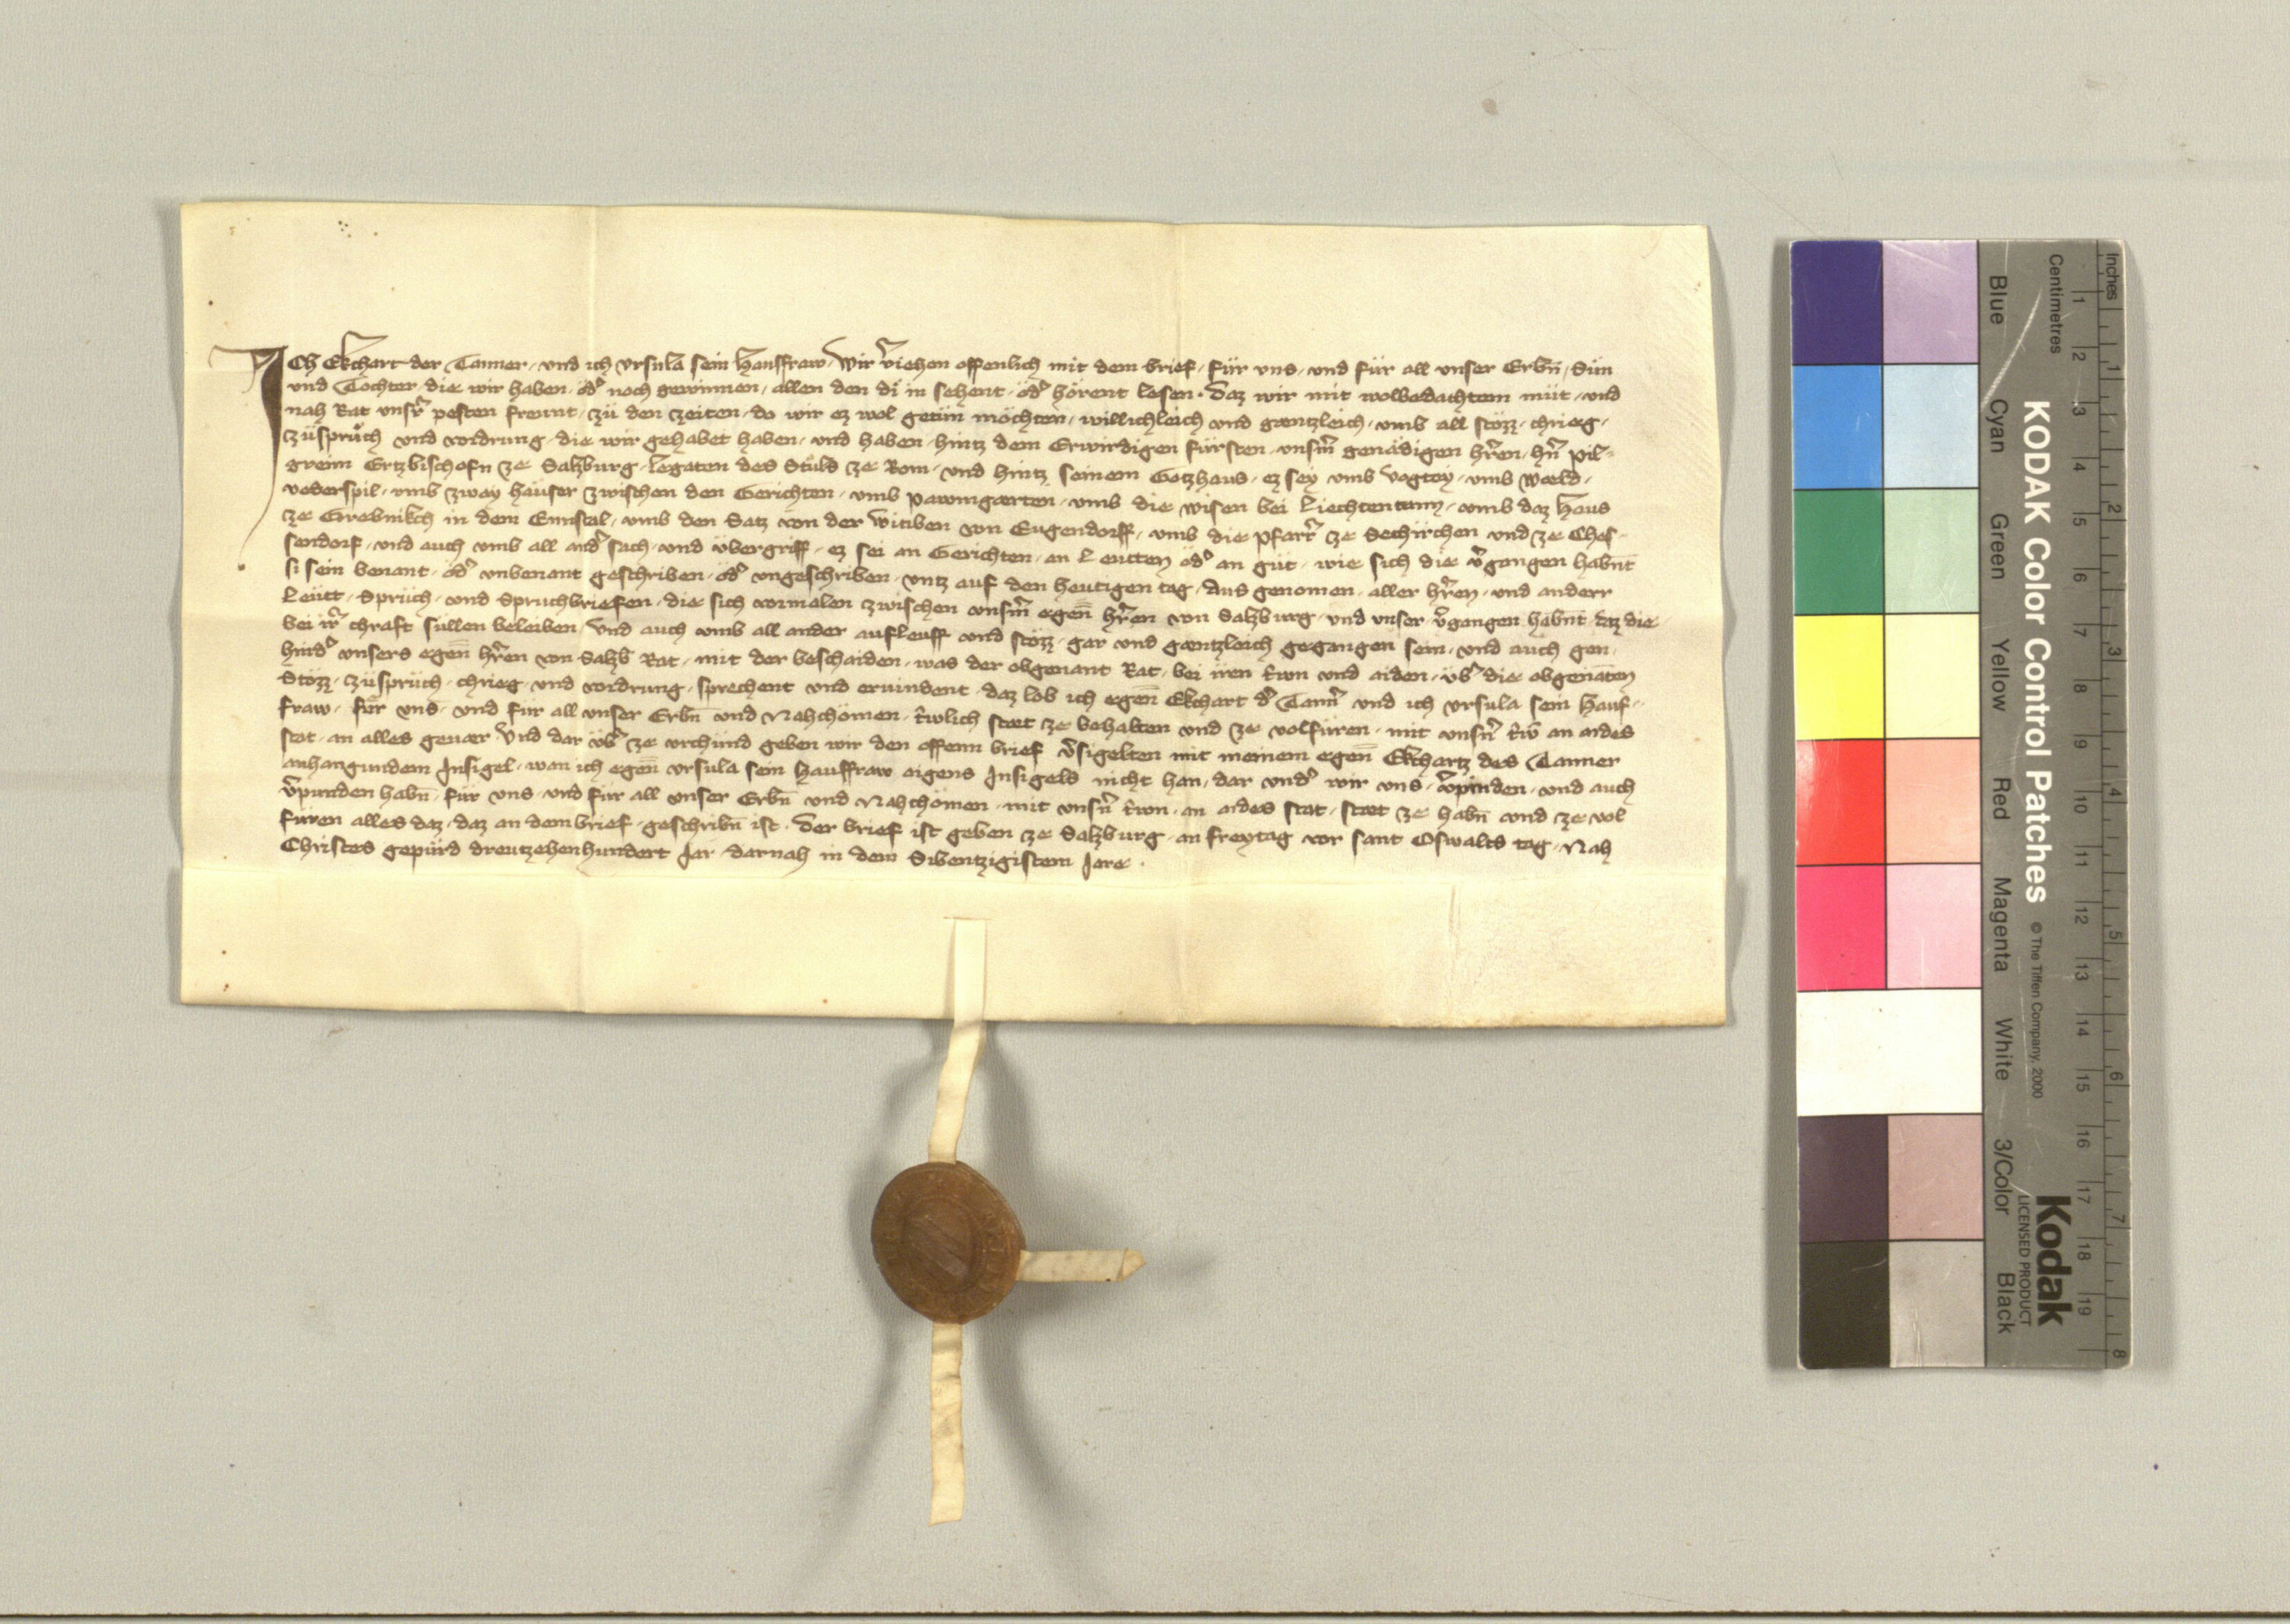 ICh Ekchart der Tanner · und ich Ursula sein Hausfraw · Wir v̄iehen offenlich mit dem brief · für uns · und für all unser Erbn̄ · Sün
und Tochter · die wir haben · od̾ noch gewinnen · allen den di in sehent · od̾ hörent lesen · Daz wir mit wolbedachtem müt · und
nah Rat unsr̄ pesten freunt · zü den zeiten · do wir ez wol getün möchten · willichleich und gæntzleich · umb all stözz · chrieg ·
züsprüch und vordrung · die wir gehabet haben · und haben · hintz dem Erwirdigen fürsten · unsm̄ genädigen hr̄en · hn̄ Pil-
greim Ertzbischofn ze Salzburg · Legaten des Stůls ze Rom · und hintz seinem Gotzhaus · ez sey umb Vogtey · umb Wæld ·
vederspil · umb zway häuser zwischen den Gerichten · umb pawmgarten · umb die wisen bei Liechtentann · umb daz Haus
ze Grebnikch in dem Ennstal · umb den Satz von der Witiben von Eugendorff · umb die pfarr̄ ze Sechirchen und ze Ches-
sendorf · und auch umb all and̾ sach · und übergriff · ez sei an Gerichten · an Leutten od̾ an güt · wie sich die v̄gangen habn̄t
si sein benant · od̾ unbenant geschriben · od̾ ungeschriben · untz auf den heutigen tag · Aus genomen · aller hr̄en · und anderr
Leütt · Sprüch · und Spruchbriefen · die sich vormalen zwischen unsm̄ egen̄ hr̄en von Salzburg · und unser · v̄gangen habn̄t · daz die
bei ir̄ chraft süllen beleiben · Und auch umb all ander aufleuff und stözz · gar und gæntzleich gegangen sein · und auch gen ·
hind̾ unsers egen̄ hr̄en von Salzb̄ Rat · mit der beschaiden · was der obgenant Rat · bei iren trwn und aiden · üb̾ die obgenāten
Stözz · züsprüch · chrieg · und vordrung · sprechent und ervindent · daz lob ich egen̄ Ekchart d̾ Tann̄ · und ich Ursula sein Haus-
fraw · für uns · und für all unser Erbn̄ und Nahchömen · trwlich stæt ze behalten und ze volfüren · mit unsn̄ trw an aides
stat · an alles geuær · Und dar üb̾ ze urchünd geben wir den offenn brief v̄sigelten mit meinem egen̄ Ekchartz des Tanner
anhangundem Insigel · wan ich egen̄ Ursula sein Hausfraw aigens Insigels nicht han · dar und̾ wir uns · v̄pinden · und auch
v̄punden habn̄ · für uns · und für all unser Erbn̄ und Nahchömen · mit unsn̄ trwn · an aides stat · stæt ze habn̄ und ze vol
füren alles daz · daz an dem brief · geschribn̄ ist · Der brief ist geben ze Salzburg · an freytag vor sant Oswalts tag · Nah
Christes gepürd dreutzehenhundert Jar · darnah in dem Sibentzigistem Jare ·
Inches
Centimetres
1 2 3 4 5 6 7 8
1 2 3 4 5 6 7 8 9 10 11 12 13 14 15 16 17 18 19
KODAK Color Control Patches
© The Tiffen Company, 2000
Kodak
LICENSED PRODUCT
Blue Cyan Green Yellow Red Magenta White 3/Color Black